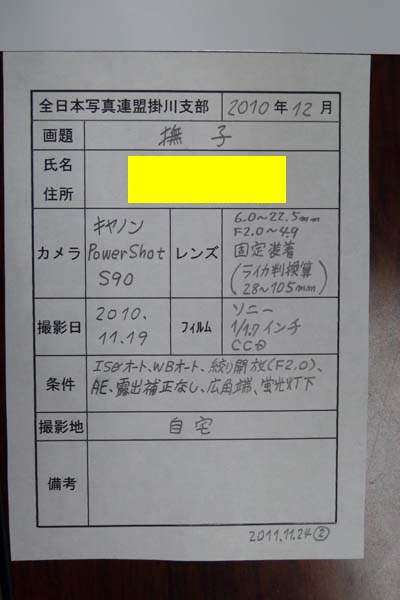 全日本写真連盟掛川支部 2010年12月
画題 撫子
氏名
住所
カメラ キヤノン PowerShot S90
レンズ 6.0~22.5mm
F2.0~4.9
固定装着
(ライカ判換算
28~105mm)
撮影日 2010.
11.19
フィルム ソニー
1/1.7インチ
CCD
条件 ISOオート、WBオート、絞り開放(F2.0)、
AE、露出補正なし、広角端、蛍光灯下
撮影地 自宅
備考
2011.11.24②